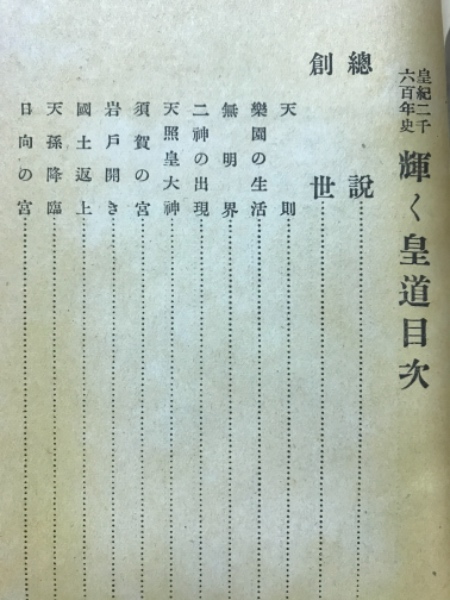 皇紀二千六百年史 輝く皇道目次
總説
創世
天則
樂園の生活
無明界
二神の出現
天照皇大神
須賀の宮
岩戸開き
國土返上
天孫降臨
日向の宮